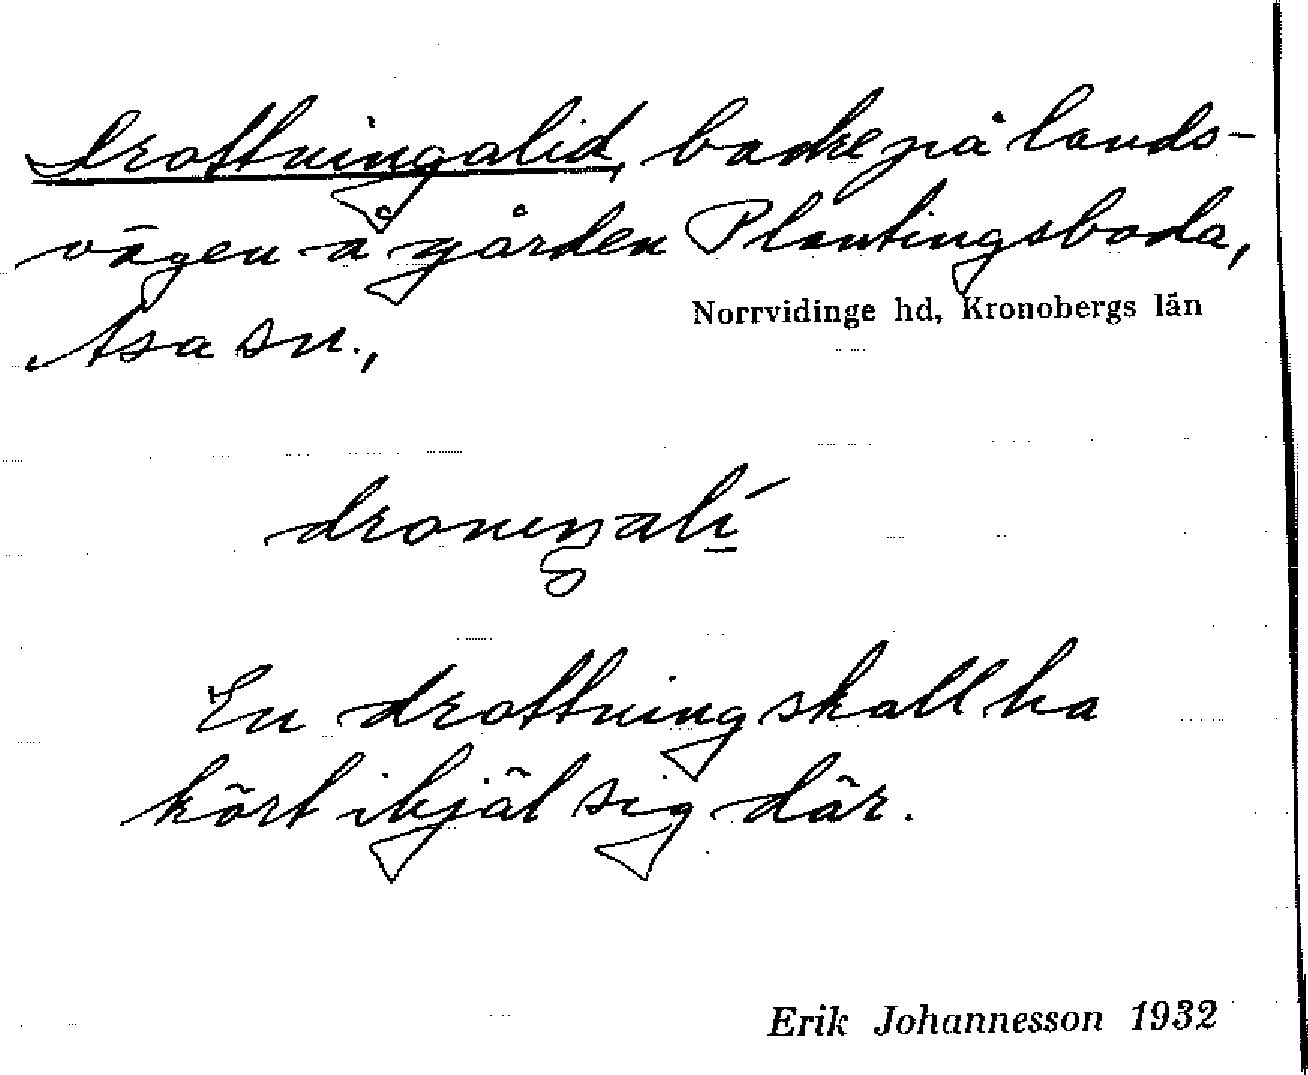 Drottningalid, backe på lands-
vägen å gården Plantingsboda,
Norrvidinge hd, Kronobergs län
Asa sn.,
En drottning skall ha
kört ihjäl sig där.
Erik Johannesson 1932